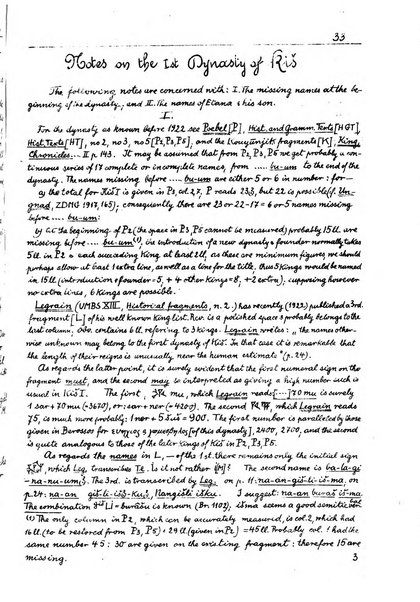 33
Notes on the 1st Dynasty of Kiš
The following notes are concerned with: I. The missing names at the be-
ginning of the dynasty, and II. The names of Etana & his son.
I.
For the dynasty as known before 1922 see Poebel [P], Hist. and Gramm. Texts [HGT],
Hist. Texts [HT], no 2, no 3, no 5 [P2, P3, P5], and the Kouyunjik fragments [K], King,
Chronicles... II p. 143. It may be assumed that from P2, P3, P5 we get probably a con-
tinuous series of 17 complete or incomplete names, from .... bu-um to the end of the
dynasty. The names missing before .... bu-um are either 5 or 6 in number: for—
a) the total for Kiš I is given in P2, col. 27, P reads 23, but 22 is possible (cf. Un-
gnad, ZDMG 1917, 165); consequently, there are 23 or 22 - 17 = 6 or 5 names missing
before .... bu-um:
b) at the beginning of P2 (the space in P3, P5 cannot be measured) probably 15 ll. are
missing before .... bu-um (1), the introduction of a new dynasty & founder normally takes
5 ll. in P2 & each succeeding King at least 2 ll., as these are minimum figures we should
perhaps allow at least 1 extra line, as well as a line for the title, thus 5 Kings would be named
in 15 ll. (introduction & founder = 5, + 4 other Kings = 8, + 2 extra); supposing however
no extra lines, 6 Kings are possible.
Legrain (UMBS XIII, Historical fragments, n. 2.) has recently (1922) published a 3rd.
fragment [L] of his well known King list. Rev. is a polished space & probably belongs to the
last column; obv. contains 6 ll. referring to 3 kings. Legrain writes: "the names other-
wise unknown may belong to the first dynasty of Kish. In that case it is remarkable that
the length of their reigns is unusually near the human estimate" (p. 24).
As regards the latter point, it is surely evident that the first numeral sign on the
fragment must, and the second may be interpreted as giving a high number such is
usual in Kiš I. The first, mu, which Legrain reads [...] 70 mu is surely
1 šar + 70 mu (=3670), or: šar + ner (=4200). The second, which Legrain reads
75, is much more probably: 1 ner + 5 šuš = 900. The first number is paralleled by those
given in Berossos for [of this dynasty], 2400, 2700, and the second
is quite analogous to those of the later Kings of Kiš in P2, P3, P5.
As regards the names in L,— of the 1st. there remains only the initial sign
, which Leg. transcribes Te. Is it not rather ? The second name is ba-la-gi
-na-nu-um; the 3rd. is transcribed by Leg. on p. 11: na-an-giš-li-iš-ma, on
p. 24: na-an giš-li-iš-ku, Nangišli išku. I suggest: na-an buraš iš-ma.
The combination giš Li = burašu is known (Br. 1102), išma seems a good semitic
(1) The only column in P2, which can be accurately measured, is col. 2, which had
16 ll. (to be restored from P3, P5) + 29 ll. (given in P2) = 45 ll. Probably col. 1 had the
same number 45: 30 are given on the existing fragment: therefore 15 are
missing.
3